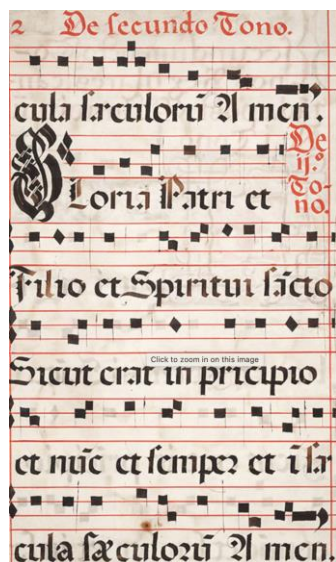 2 De secundo Tono.
cula sæculorũ A men.
De
ij.º
To-
no.
Gloria Patri et
Filio et Spiritui sãcto
Click to zoom in on this image
Sicut erat in pricipio
et nũc et semper et ĩ sæ
cula sæculorũ A men.